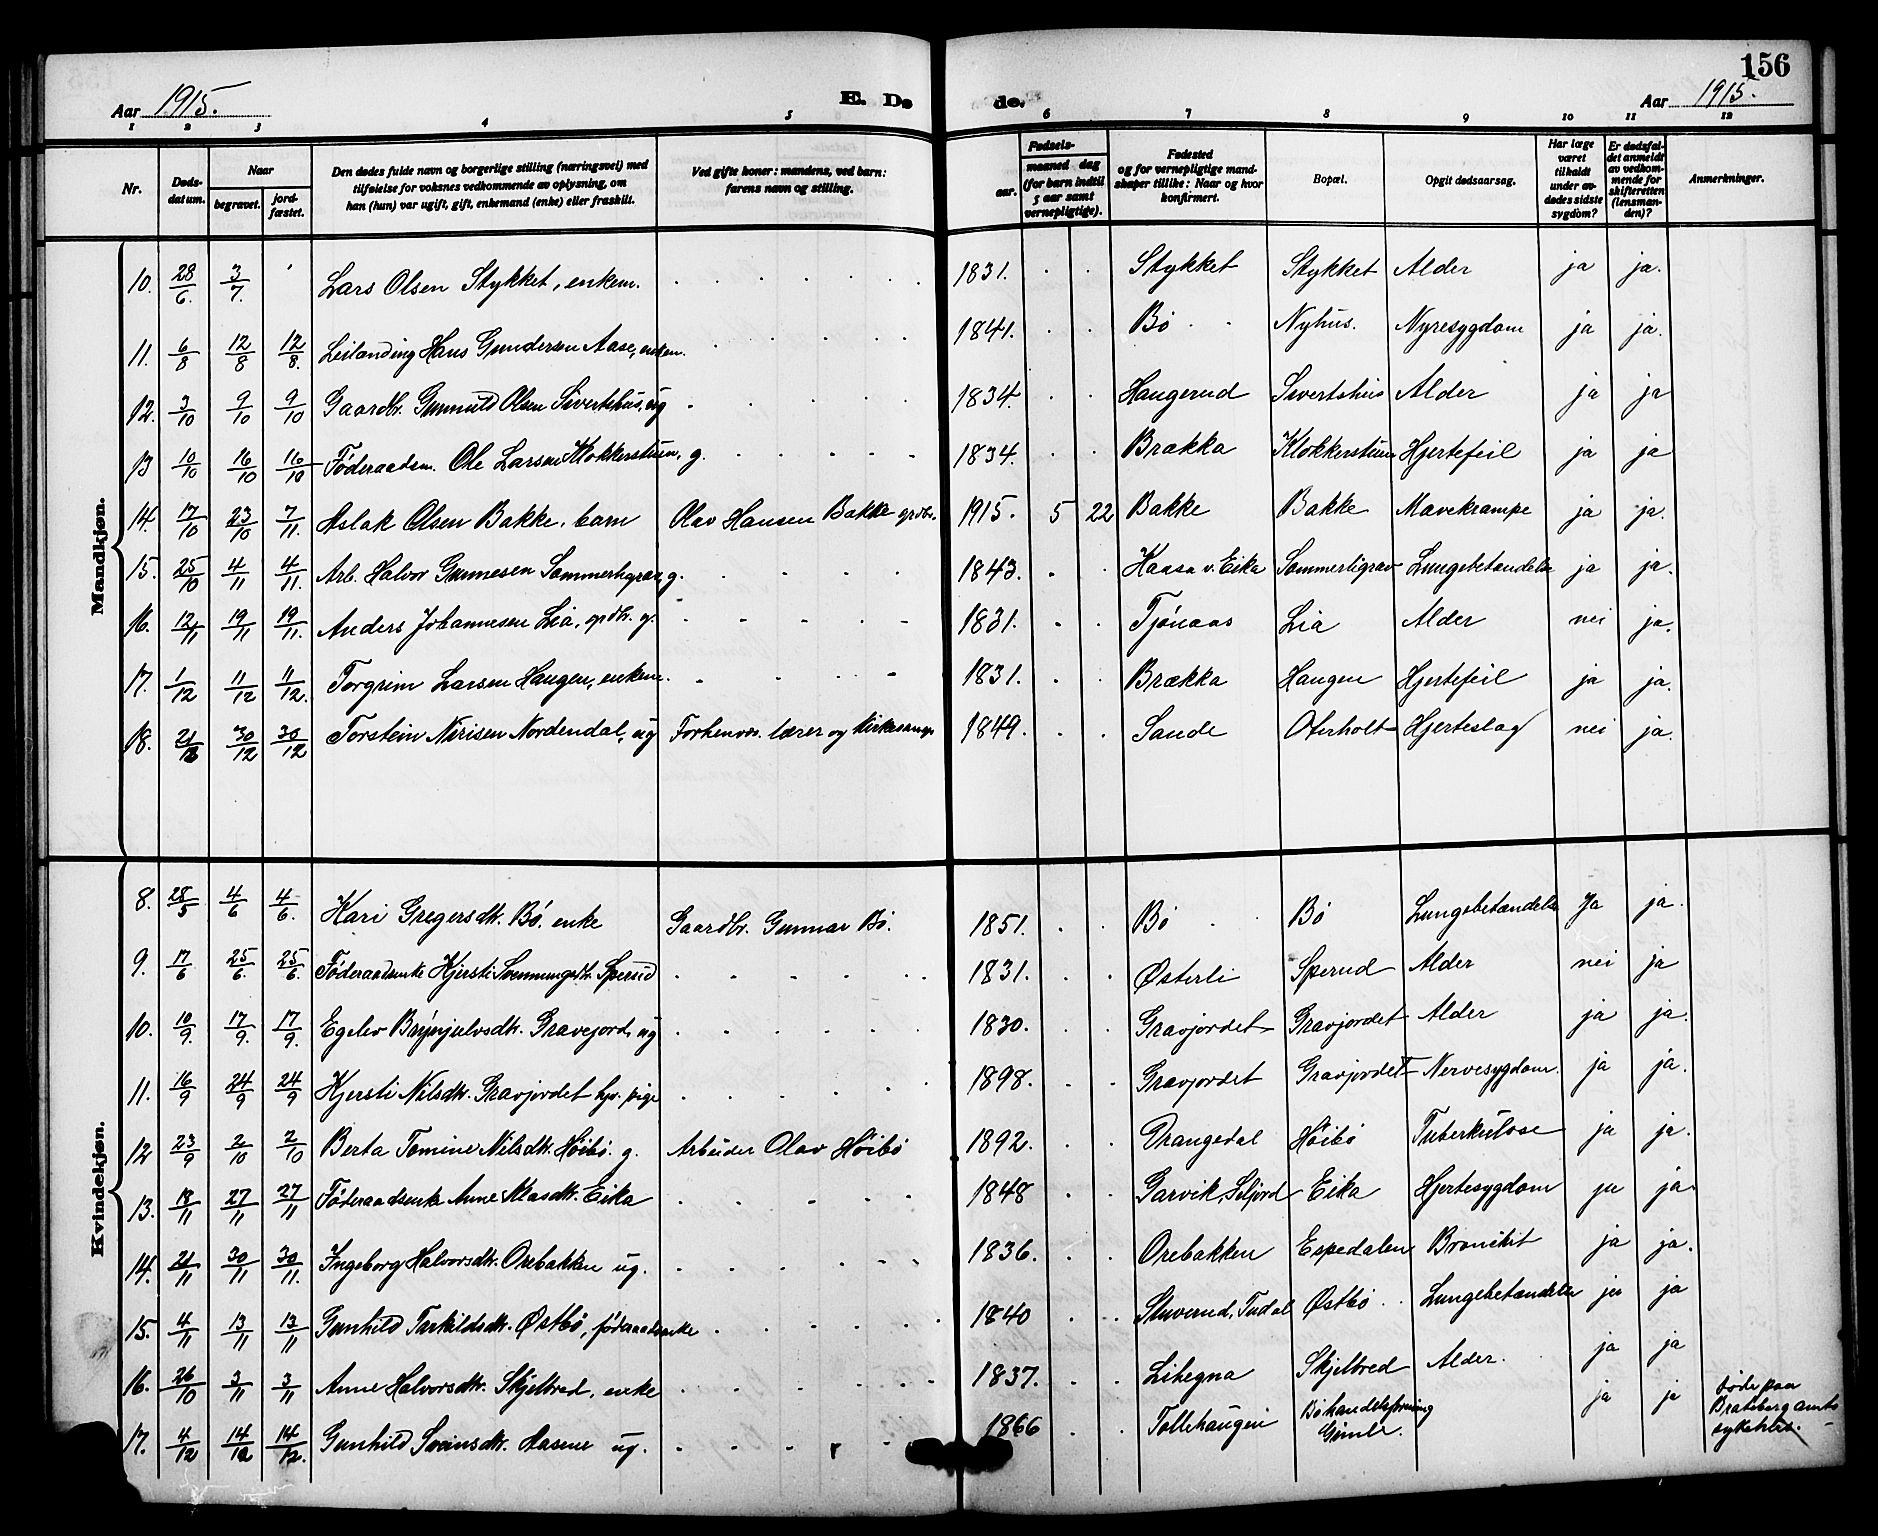 156
Aar 1915. E. Dø de. Aar 1915.
1 2 3 4 5 6 7 8 9 10 11 12
Nr. Døds-datum. Naar begravet. jord-fæstet. Den dødes fulde navn og borgerlige stilling (næringsvei) med tilføielse for voksnes vedkommende av oplysning, om han (hun) var ugift, gift, enkemand (enke) eller fraskilt. Ved gifte koner: mandens, ved barn: farens navn og stilling. Fødsels- aar. maaned dag (for barn indtil 5 aar samt vernepligtige). Fødested og for vernepligtige mand-skaper tillike: Naar og hvor konfirmert. Bopæl. Opgit dødsaarsag. Har læge været tilkaldt under av-dødes sidste sygdom? Er dødsfal-det anmeldt av vedkom-mende for skifteretten (lensman-den)? Anmerkninger.
Mandkjøn.
10. 28/6. 3/7. Lars Olsen Stykket, enkem. 1831. Stykket Stykket Alder ja ja.
11. 6/8 12/8 12/8. Leilending Hans Gundersen Aase, enkem. 1841. Bø Nyhus. Nyresygdom ja ja.
12. 3/10 9/10 9/10 Gaardbr. Gunnuld Olsen Sivertshus, ug 1834. Haugerud Sivertshus Alder ja ja
13 10/10 16/10 16/10 Føderaadsm. Ole Larsen Klokkerstuen, g. 1834. Brækka Klokkerstuen Hjertefeil ja ja
14. 17/10 23/10 7/11. Aslak Olsen Bakke, barn Olav Hansen Bakke grdbr. 1915. 5 22 Bakke Bakke Mavekrampe ja ja.
15. 25/10 4/11 4/11. Arb. Halvor Gunnesen Sommerligrav, g. 1843. Haasa v. Eika Sommerligrav Lungebetændelse ja ja.
16. 12/11 19/11 19/11. Anders Johannesen Lia, grdbr. g. 1831. Tjønaas Lia Alder nei ja.
17. 1/12 11/12 11/12. Torgrim Larsen Haugen, enkem. 1831. Brækka Haugen Hjertefeil ja ja.
18. 21/12 30/12 30/12 Torstein Nirisen Nordendal, ug Forhenvær. lærer og kirkesanger 1849. Sande Oterholt Hjerteslag nei ja.
Kvindekjøn.
8. 28/5 4/6 4/6. Kari Gregersdtr. Bø, enke Gaardbr. Gunnar Bø. 1851. Bø Bø Lungebetændelse Ja ja.
9. 17/6 25/6. 25/6. Føderaadsenke Kjersti Svenningsdtr. Sperud 1831. Østerli Sperud Alder nei ja
10. 10/9. 17/9. 17/9. Egelev Brynjulvsdtr. Gravejord, ug 1830. Gravjordet Gravjordet Alder ja ja.
11. 16/9 24/9 24/9 Kjersti Nilsdtr. Gravjordet hjv. pige 1898. Gravjordet Gravjordet Nervesygdom. ja ja.
12 23/9 2/10 2/10 Berta Tomine Nilsdtr. Høibø. g. Arbeider Olav Høibø 1892. Drangedal Høibø Tuberkulose ja ja.
13. 18/11 27/11 27/11 Føderaadsenke Anne Klasdtr. Eika 1848 Garvik, Seljord Eika Hjertesygdom ja ja.
14. 21/11 30/11 30/11. Ingeborg Halvorsdtr. Orebakken ug. 1836. Orebakken Espedalen Bronikit ja ja.
15. 4/11 13/11 13/11 Gunhild Tarkildsdtr. Østbø, føderaadsenke 1840 Stuverud, Tudal Østbø Lungebetændelse ja ja
16. 26/10 3/11 3/11 Anne Halvorsdtr. Skjelbred, enke 1837. Lihegna Skjelbred Alder. ja ja
17. 4/12 14/12 14/12. Gunhild Sveinsdtr. Hasene ug. 1866 Tollehaugen Bø handelsforening Gimle. ja ja døde paa Bratsberg amts sykehus.